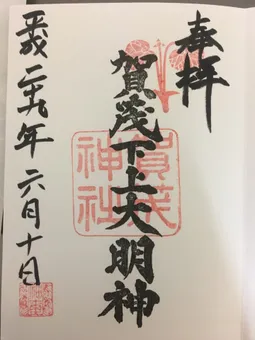 奉拝
賀茂下上大明神
賀茂神社
平成二十九年六月十日